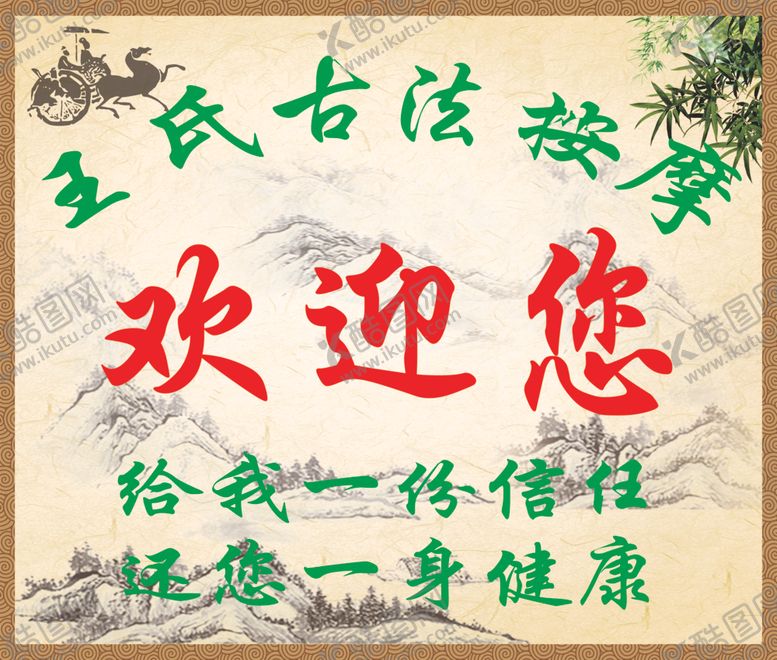 王氏古法按摩
欢迎您
给我一份信任
还您一身健康
酷图网
www.ikutu.com